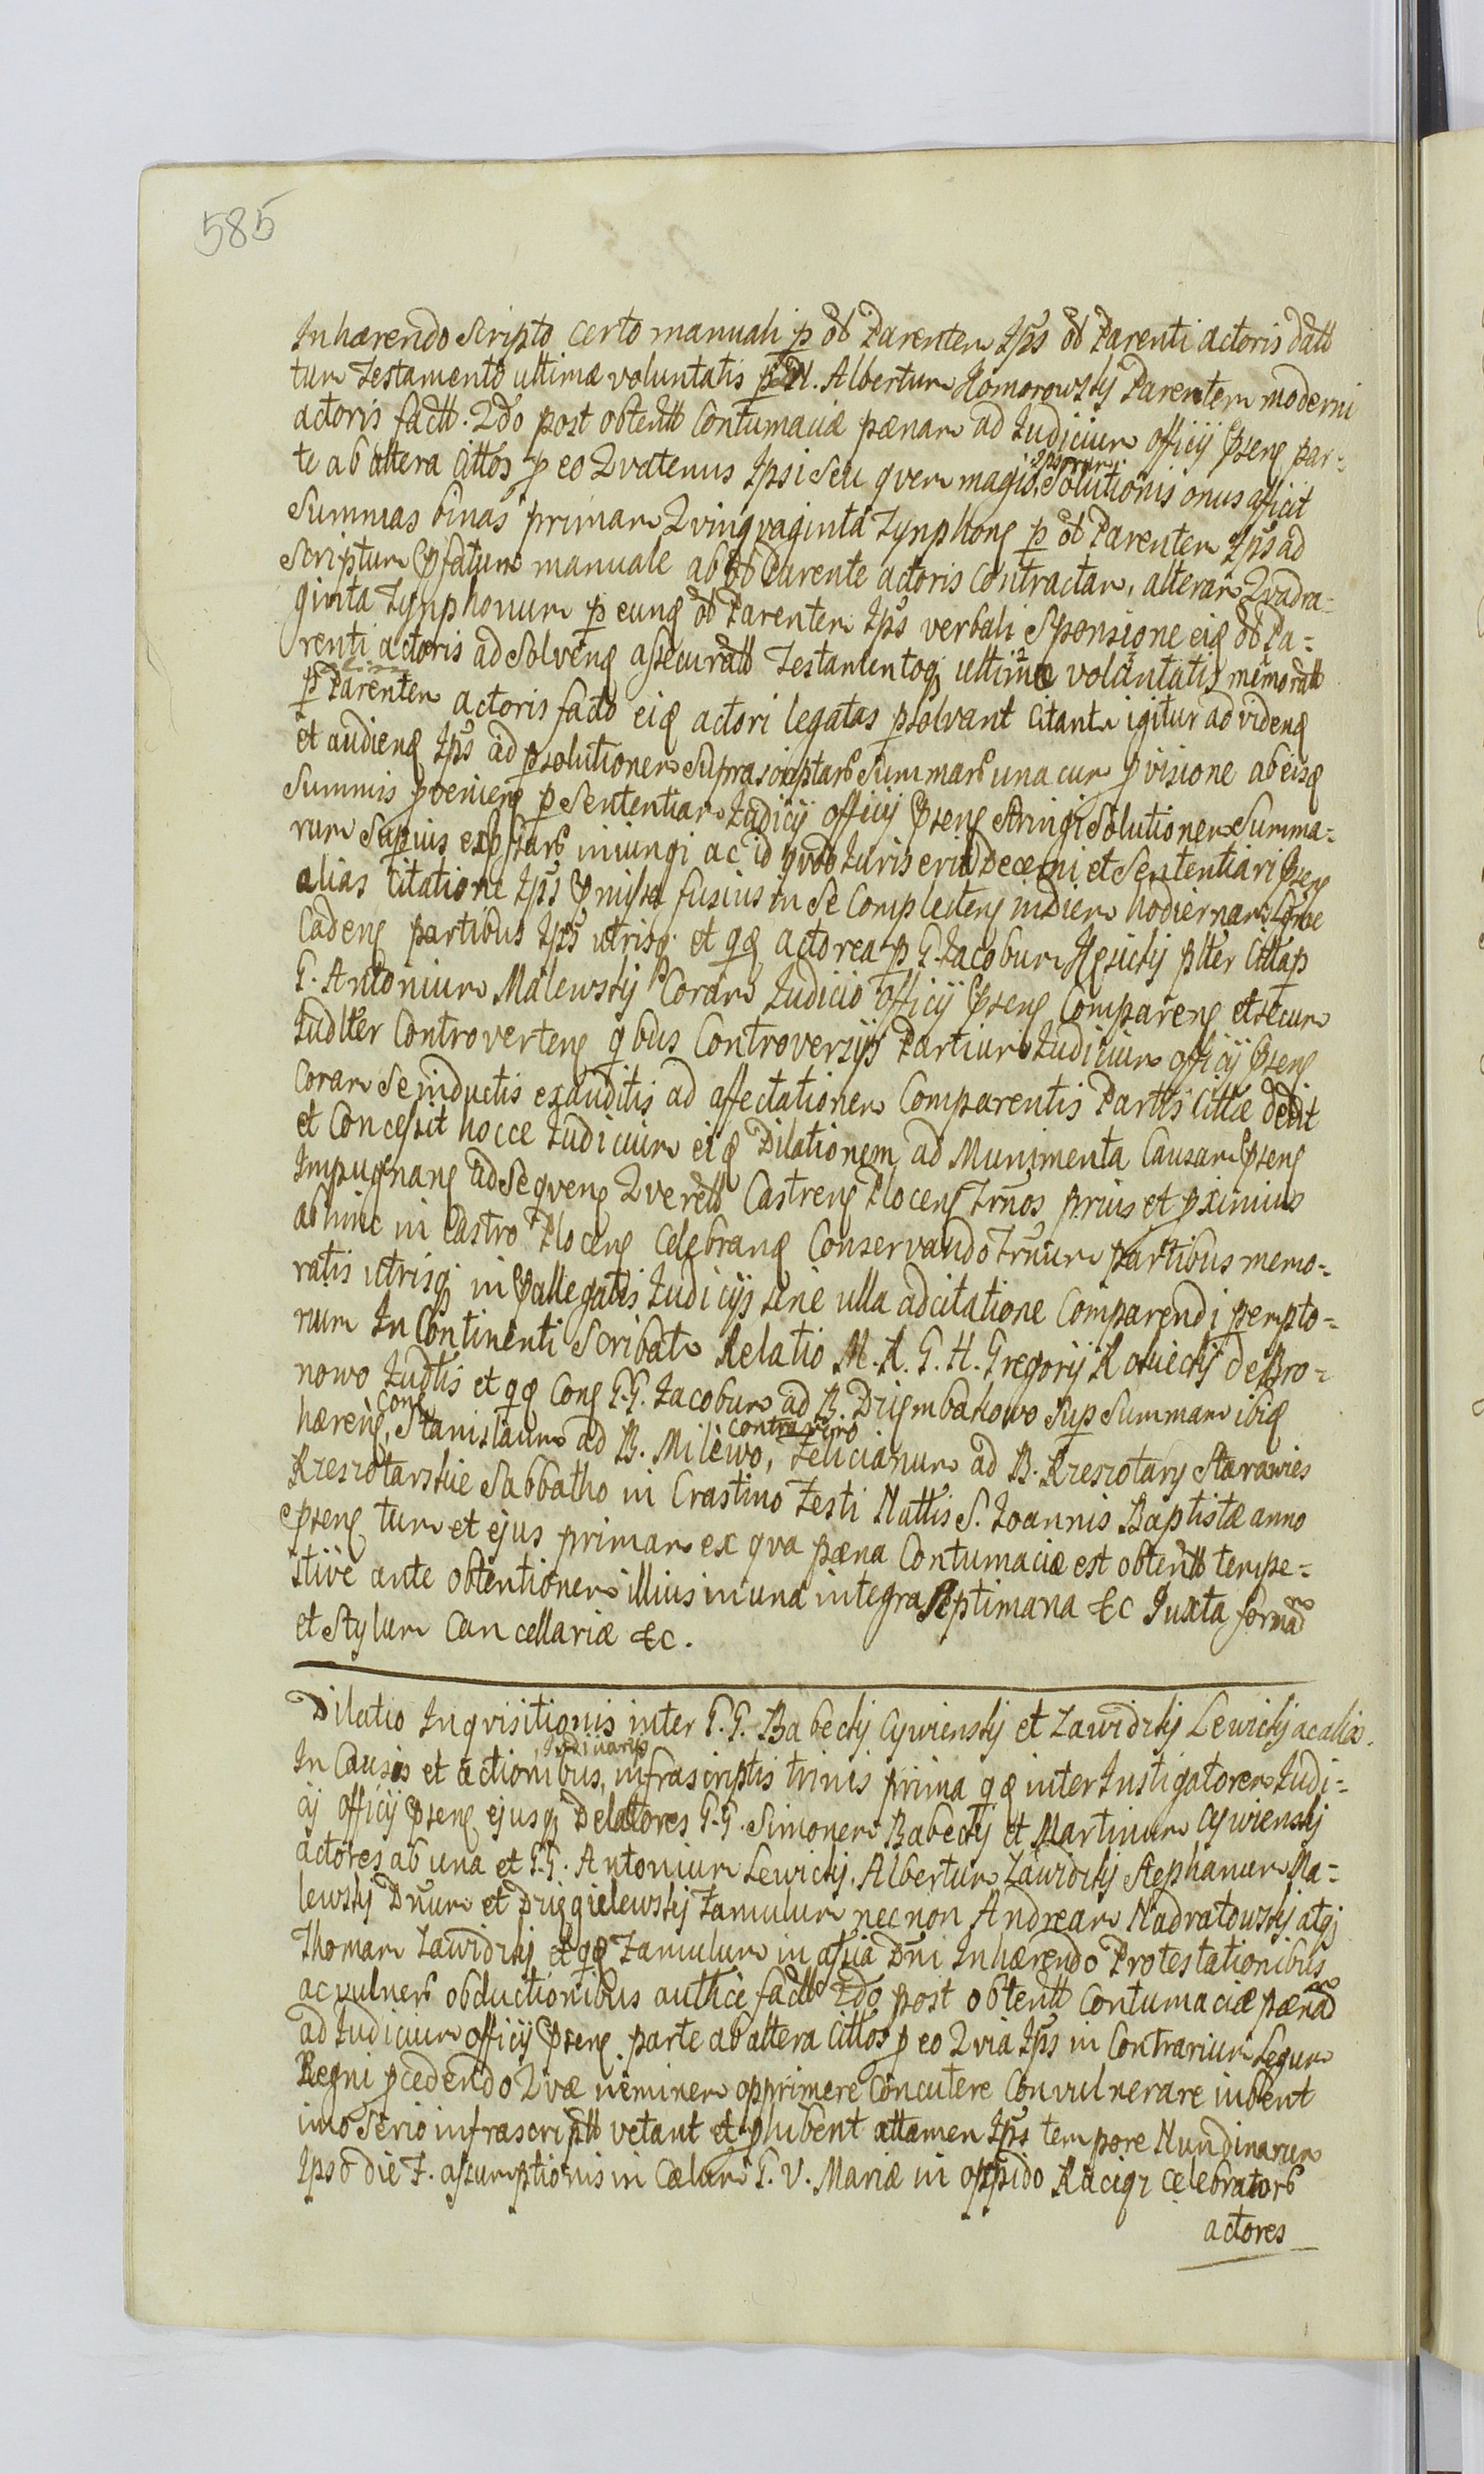 585
Inhærendo Scripto certo manuali p ōb Parentem Ips ōb Parenti actoris datt
tum Testamento ultimæ voluntatis p N. Albertum Homorowskij Parentem moderni
actoris factt. 2do post obtentt Contumaciæ pænam ad Judicium officij Pseng par=
te ab altera Cittos p eo Qvatenus Ipsi Seu qvem magis ipsorum Solutionis onus afficit
Summas binas primam Qvinqvaginta Tynphong p ōb Parentem Ips ad
Scriptum Pfatum manuale ab ōb Parente actoris Contractam, alteram Qvadra=
ginta Tynphonum p eunq ōb Parentem Ips verbali Sponsione eiq ōb Pa=
renti actoris ad Solveng assecuratt Testamentoq ultimæ voluntatis memoratt
p olim Parentem actoris facto eiq actori legatas psolvant Citantr igitur ad videng
et audieng Ips ad psolutionem Suprascriptarb Summarb una cum pvisione ab eisq
Summis pvenieng p Sententiam Judicij officij Pseng Stringi Solutionem Summa=
rum Supius expssarb iniungi ac id qvod Juris erit Decerni et Sententiari Pseng
alias Citatione Ips Pmissa fusius in Se Complecteng in diem hodiernam
Cadeng partibus Ips utrisq et qq actorea p G. Jacobum plter Citta p
G. Antonium Malewskij Coram Judicio officij Pseng Compareng et secum
Judlter Controverteng qbus Controversijs Partium Judicium officij Pseng
Coram Se inductis exauditis ad affectationem Comparentis Partis Cittæ dedit
et Concessit hocce Judicium eiq Dilationem ad Munimenta Causam Pseng
Impugnang ad Seqveng Qverett Castreng Ploceng Trnos prius et pximius
abhinc in Castro Ploceng Celebrang Conservando Trnum partibus memo=
ratis utrisq in Pallegatis Judicijs sine ulla adcitatione Comparendi perpto=
rium In Continenti Scribatr Relatio M. R. G. H. Gregorij de Bro=
nowo Judtis et qq Cong G.G. Jacobum ad B. Driembakowo Sup Summam ibiq
hæreng, Cong Stanislaum ad B. Milewo, Contra vero Felicianum ad B. Krzesrotary Starawies
Krzesrotarskie Sabbatho in Crastino Festi Nattis S. Joannis Baptistæ anno
Pseng tum et ejus primam ex qva pæna Contumaciæ est obtentt tempe=
stive ante obtentionem illius in una integra Septimana &c Juxta formam
et Stylum Cancellariæ &c.
Dilatio Inqvisitionis inter G.G. Babecky Cywienskij et Zawidzkij Lewickij ac alios.
In Causis et actionibus, Judiciarijs infrascriptis trinis prima qq inter Instigatorem Judi=
cij officij Pseng ejusq Delatores G.G. Simonem Babeckij et Martinum Cywienskij
actores ab una et G.G. Antonium Lewickij, Albertum Zawidzkij Stephanum Ma=
lewskij Dnum et Famulum nec non Andream Nadratowskij atq
Thomam Zawidzkij et qq Famulum in assia Dni Inhærendo Protestationibus
ac vulnerb obductionibus authce factt 2do post obtentt Contumaciæ pænam
ad Judicium officij Pseng parte ab altera Cittos p eo Qvia Ips in Contrarium Legum
Regni pcedendo Qvæ neminem opprimere Concutere Convulnerare iubent
imo Serio infrascriptt vetant et phibent attamen Ips tempore Nundinarum
Ipso die F. assumptionis in Cælum G. V. Mariæ in oppido Raciąz celebratorb
actores